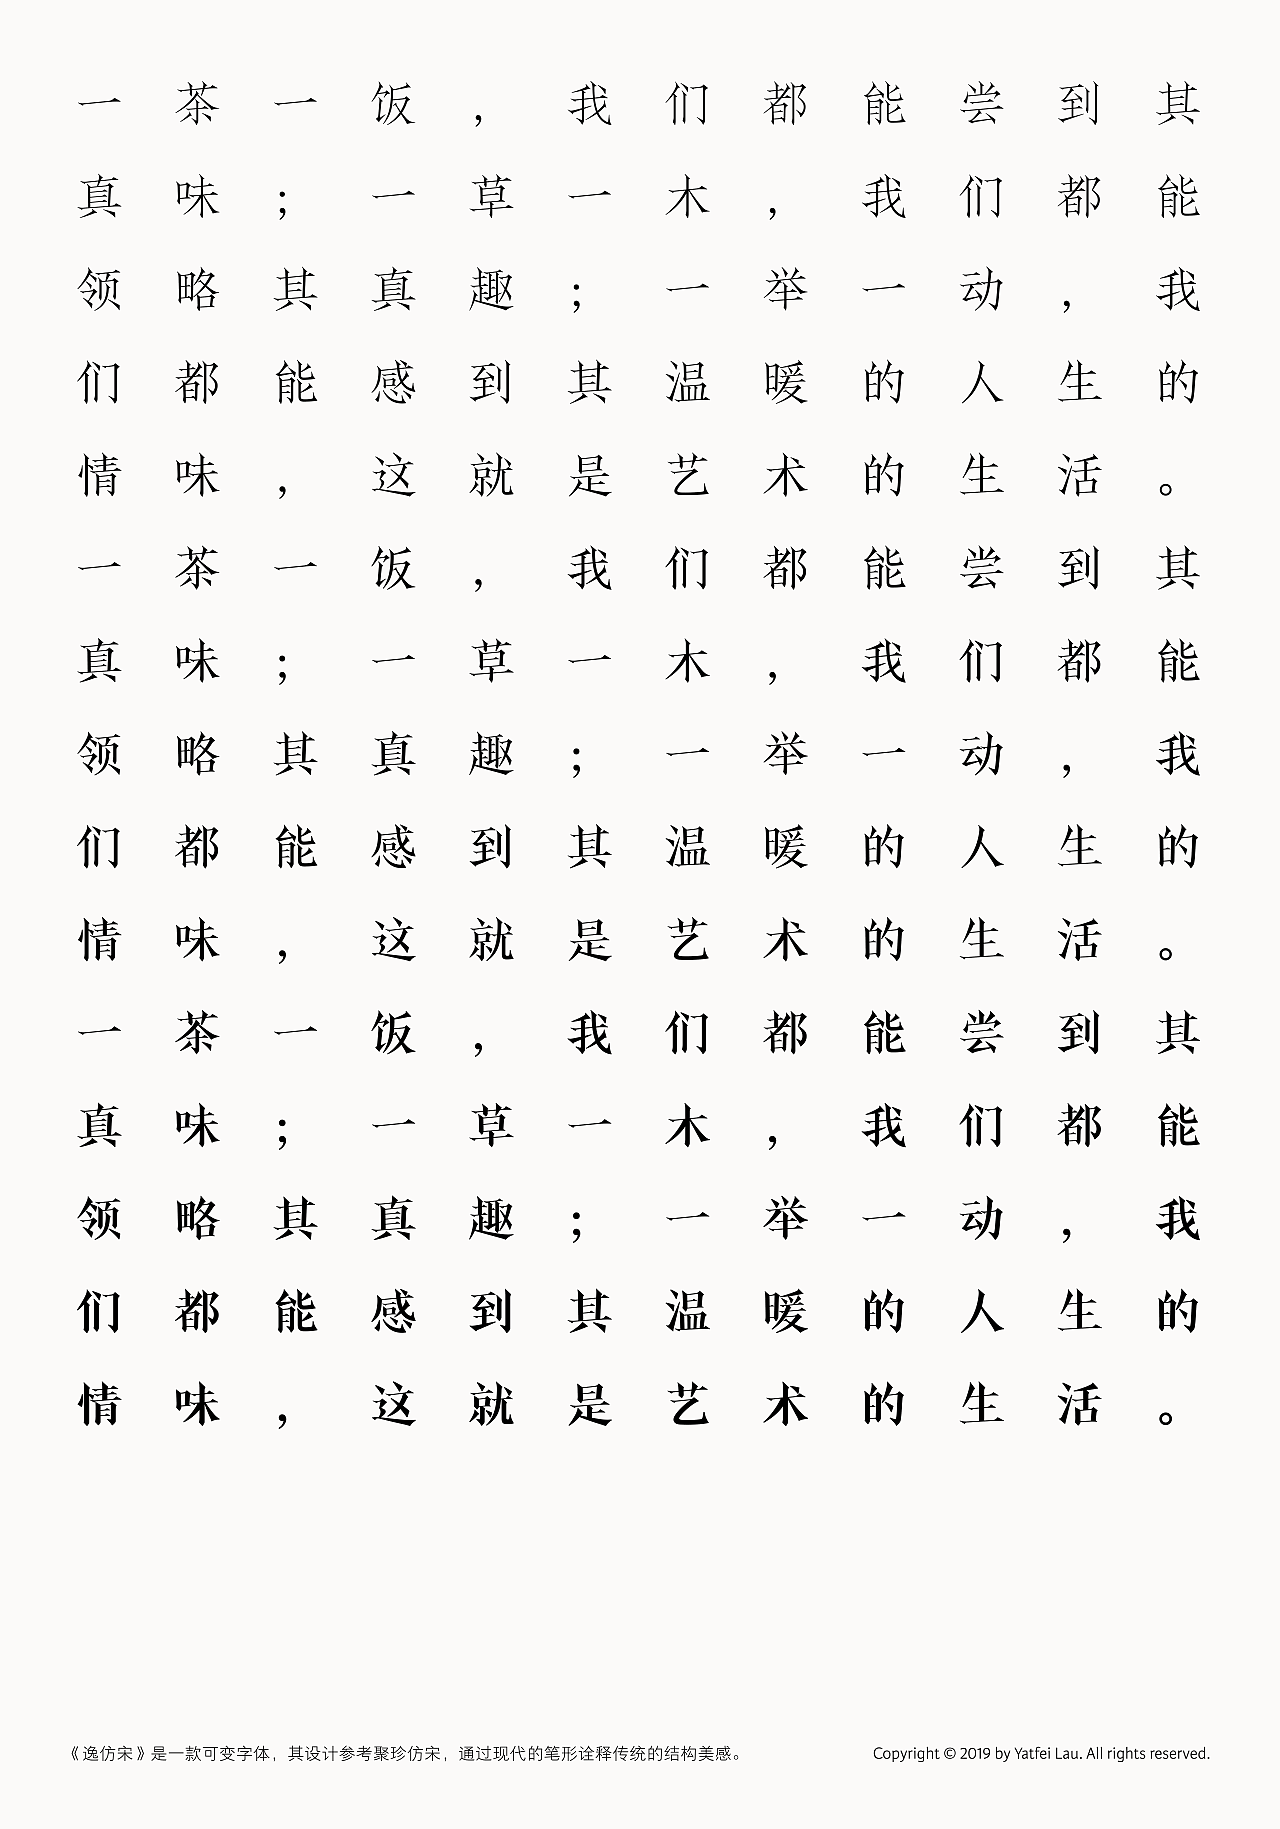 一茶一饭，我们都能尝到其
真味；一草一木，我们都能
领略其真趣；一举一动，我
们都能感到其温暖的人生的
情味，这就是艺术的生活。
一茶一饭，我们都能尝到其
真味；一草一木，我们都能
领略其真趣；一举一动，我
们都能感到其温暖的人生的
情味，这就是艺术的生活。
一茶一饭，我们都能尝到其
真味；一草一木，我们都能
领略其真趣；一举一动，我
们都能感到其温暖的人生的
情味，这就是艺术的生活。
《逸仿宋》是一款可变字体，其设计参考聚珍仿宋，通过现代的笔形诠释传统的结构美感。
Copyright © 2019 by Yatfei Lau. All rights reserved.